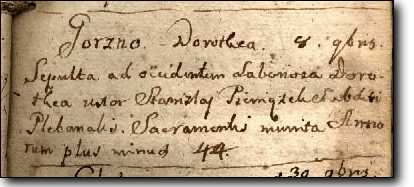 Gorzno. Dorothea. 8. 9bris.
Sepulta ad occidentem Laboriosa Doro-
thea uxor Stanislaj Subditi
Plebanalis. Sacramentis munita Anno-
rum plus minus 44.